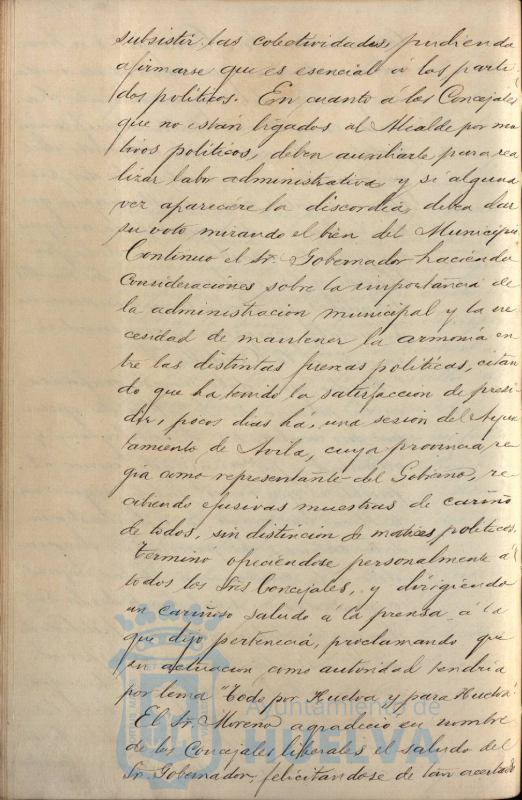 subsistir las colectividades, pudiendo
afirmarse que es esencial á los parti-
dos políticos. En cuanto á los Concejales
que no están ligados al Alcalde por mo
tivos políticos, deben auxiliarle para rea
lizar labor administrativa, y si alguna
vez apareciere la discordia, deben dar
su voto mirando el bien del Municipio.
Continuó el Sr. Gobernador haciendo
consideraciones sobre la importancia de
la administracion municipal y la ne
cesidad de mantener la armonía en
tre las distintas fuerzas políticas, citan
do que ha tenido la satisfaccion de presi
dir, pocos dias há, una sesion del Ayun
tamiento de Avila, cuya provincia re
gía como representante del Gobierno, re
cibiendo efusivas muestras de cariño
de todos, sin distincion de matices políticos.
Terminó ofreciéndose personalmente á
todos los Sres Concejales, y dirigiendo
un cariñoso saludo á la prensa á la
que dijo pertenecía, proclamando que
su actuacion como autoridad tendría
por lema "Todo por Huelva y para Huelva".
El Sr. Moreno agradeció en nombre
de los Concejales liberales el saludo del
Sr. Gobernador, felicitandose de tan acertado
Ayuntamiento de
HUELVA